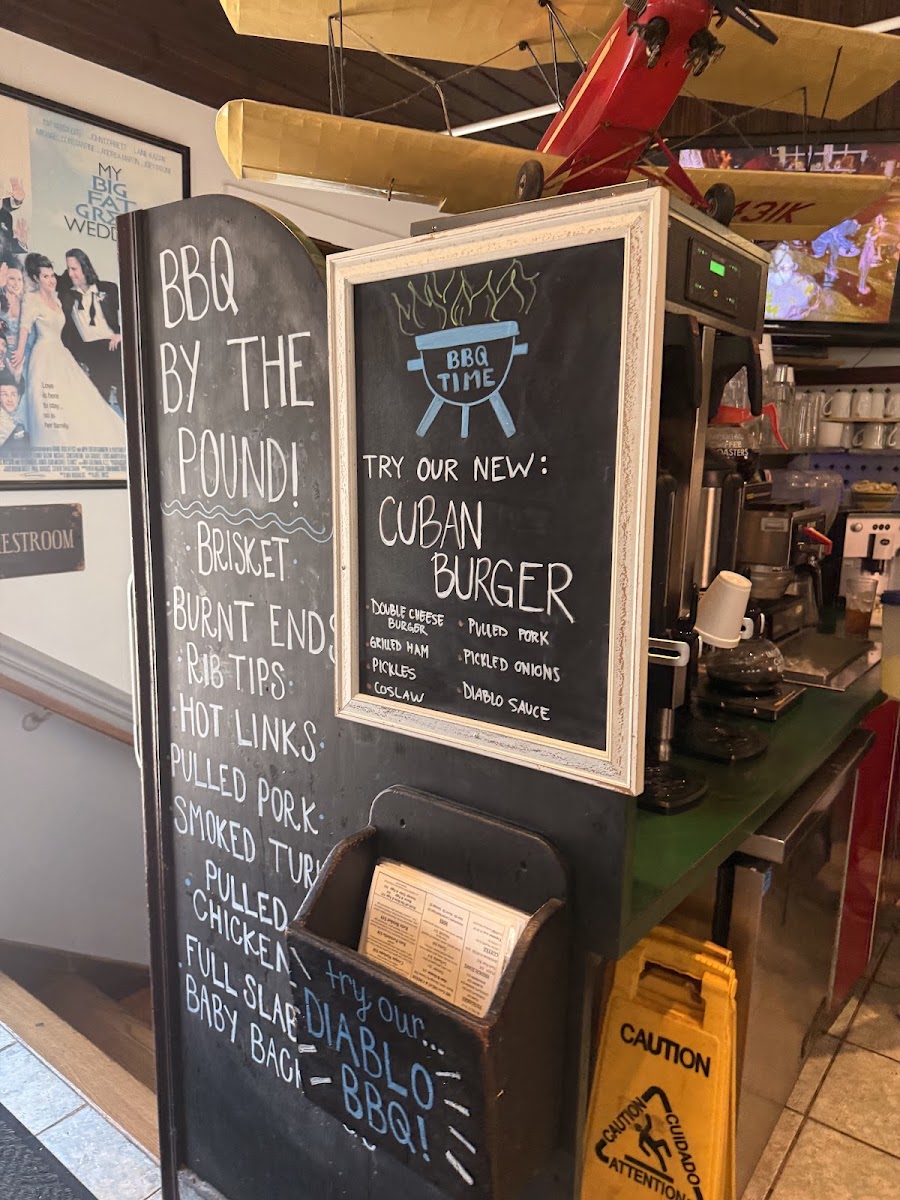 MY
BIG
FAT
WEDD
Love
is here
to stay...
so is
her family.
RESTROOM
BBQ
BY THE
POUND!
BRISKET
BURNT ENDS
RIB TIPS
HOT LINKS
PULLED PORK
SMOKED TUR
PULLED
CHICKEN
FULL SLAB
BABY BAC
BBQ
TIME
TRY OUR NEW:
CUBAN
BURGER
DOUBLE CHEESE
BURGER
GRILLED HAM
PICKLES
COSLAW
PULLED PORK
PICKLED ONIONS
DIABLO SAUCE
try our...
DIABLO
BBQ!
CAUTION
CAUTION
CUIDADO
ATTENTION
43IK